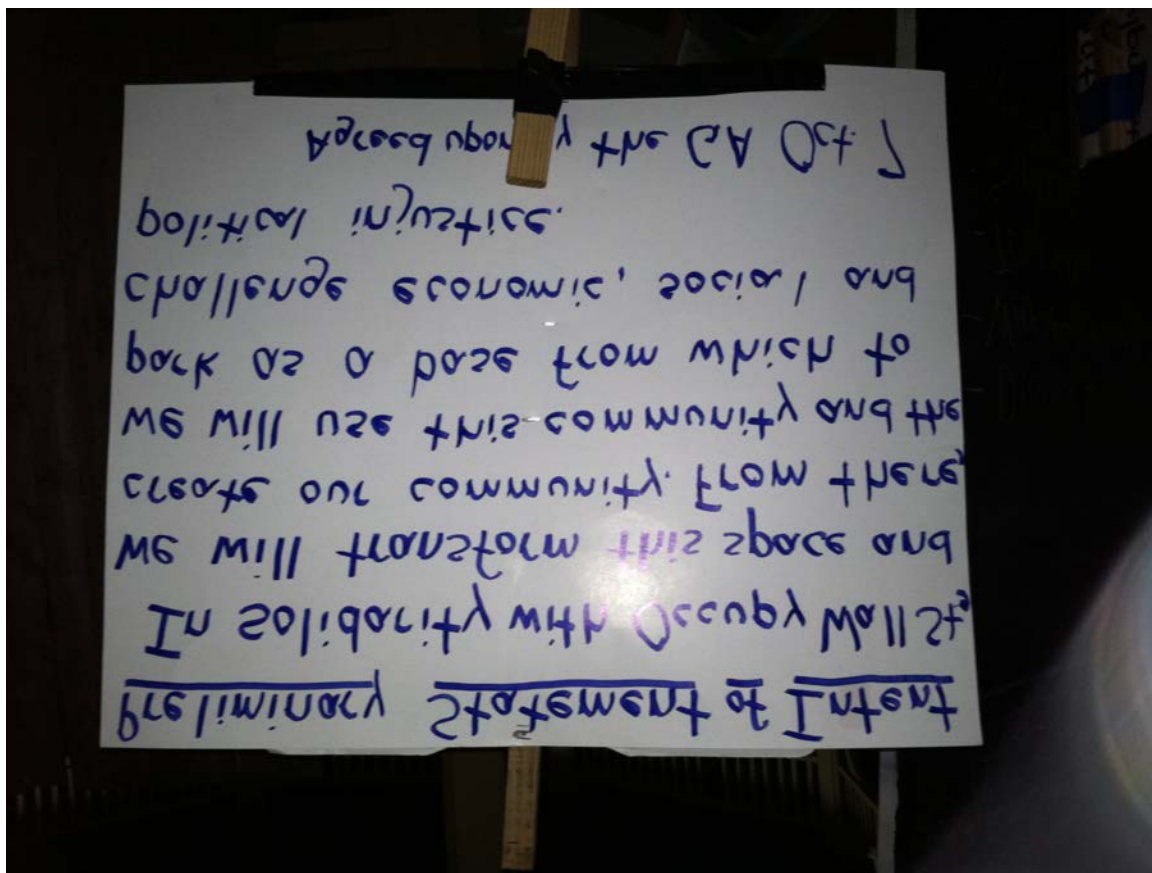 Preliminary Statement of Intent
In Solidarity with Occupy Wall St,
we will transform this space and
create our community. From there,
we will use this community and the
park as a base from which to
challenge economic, social and
political injustice.
Agreed upon by the GA Oct. 7